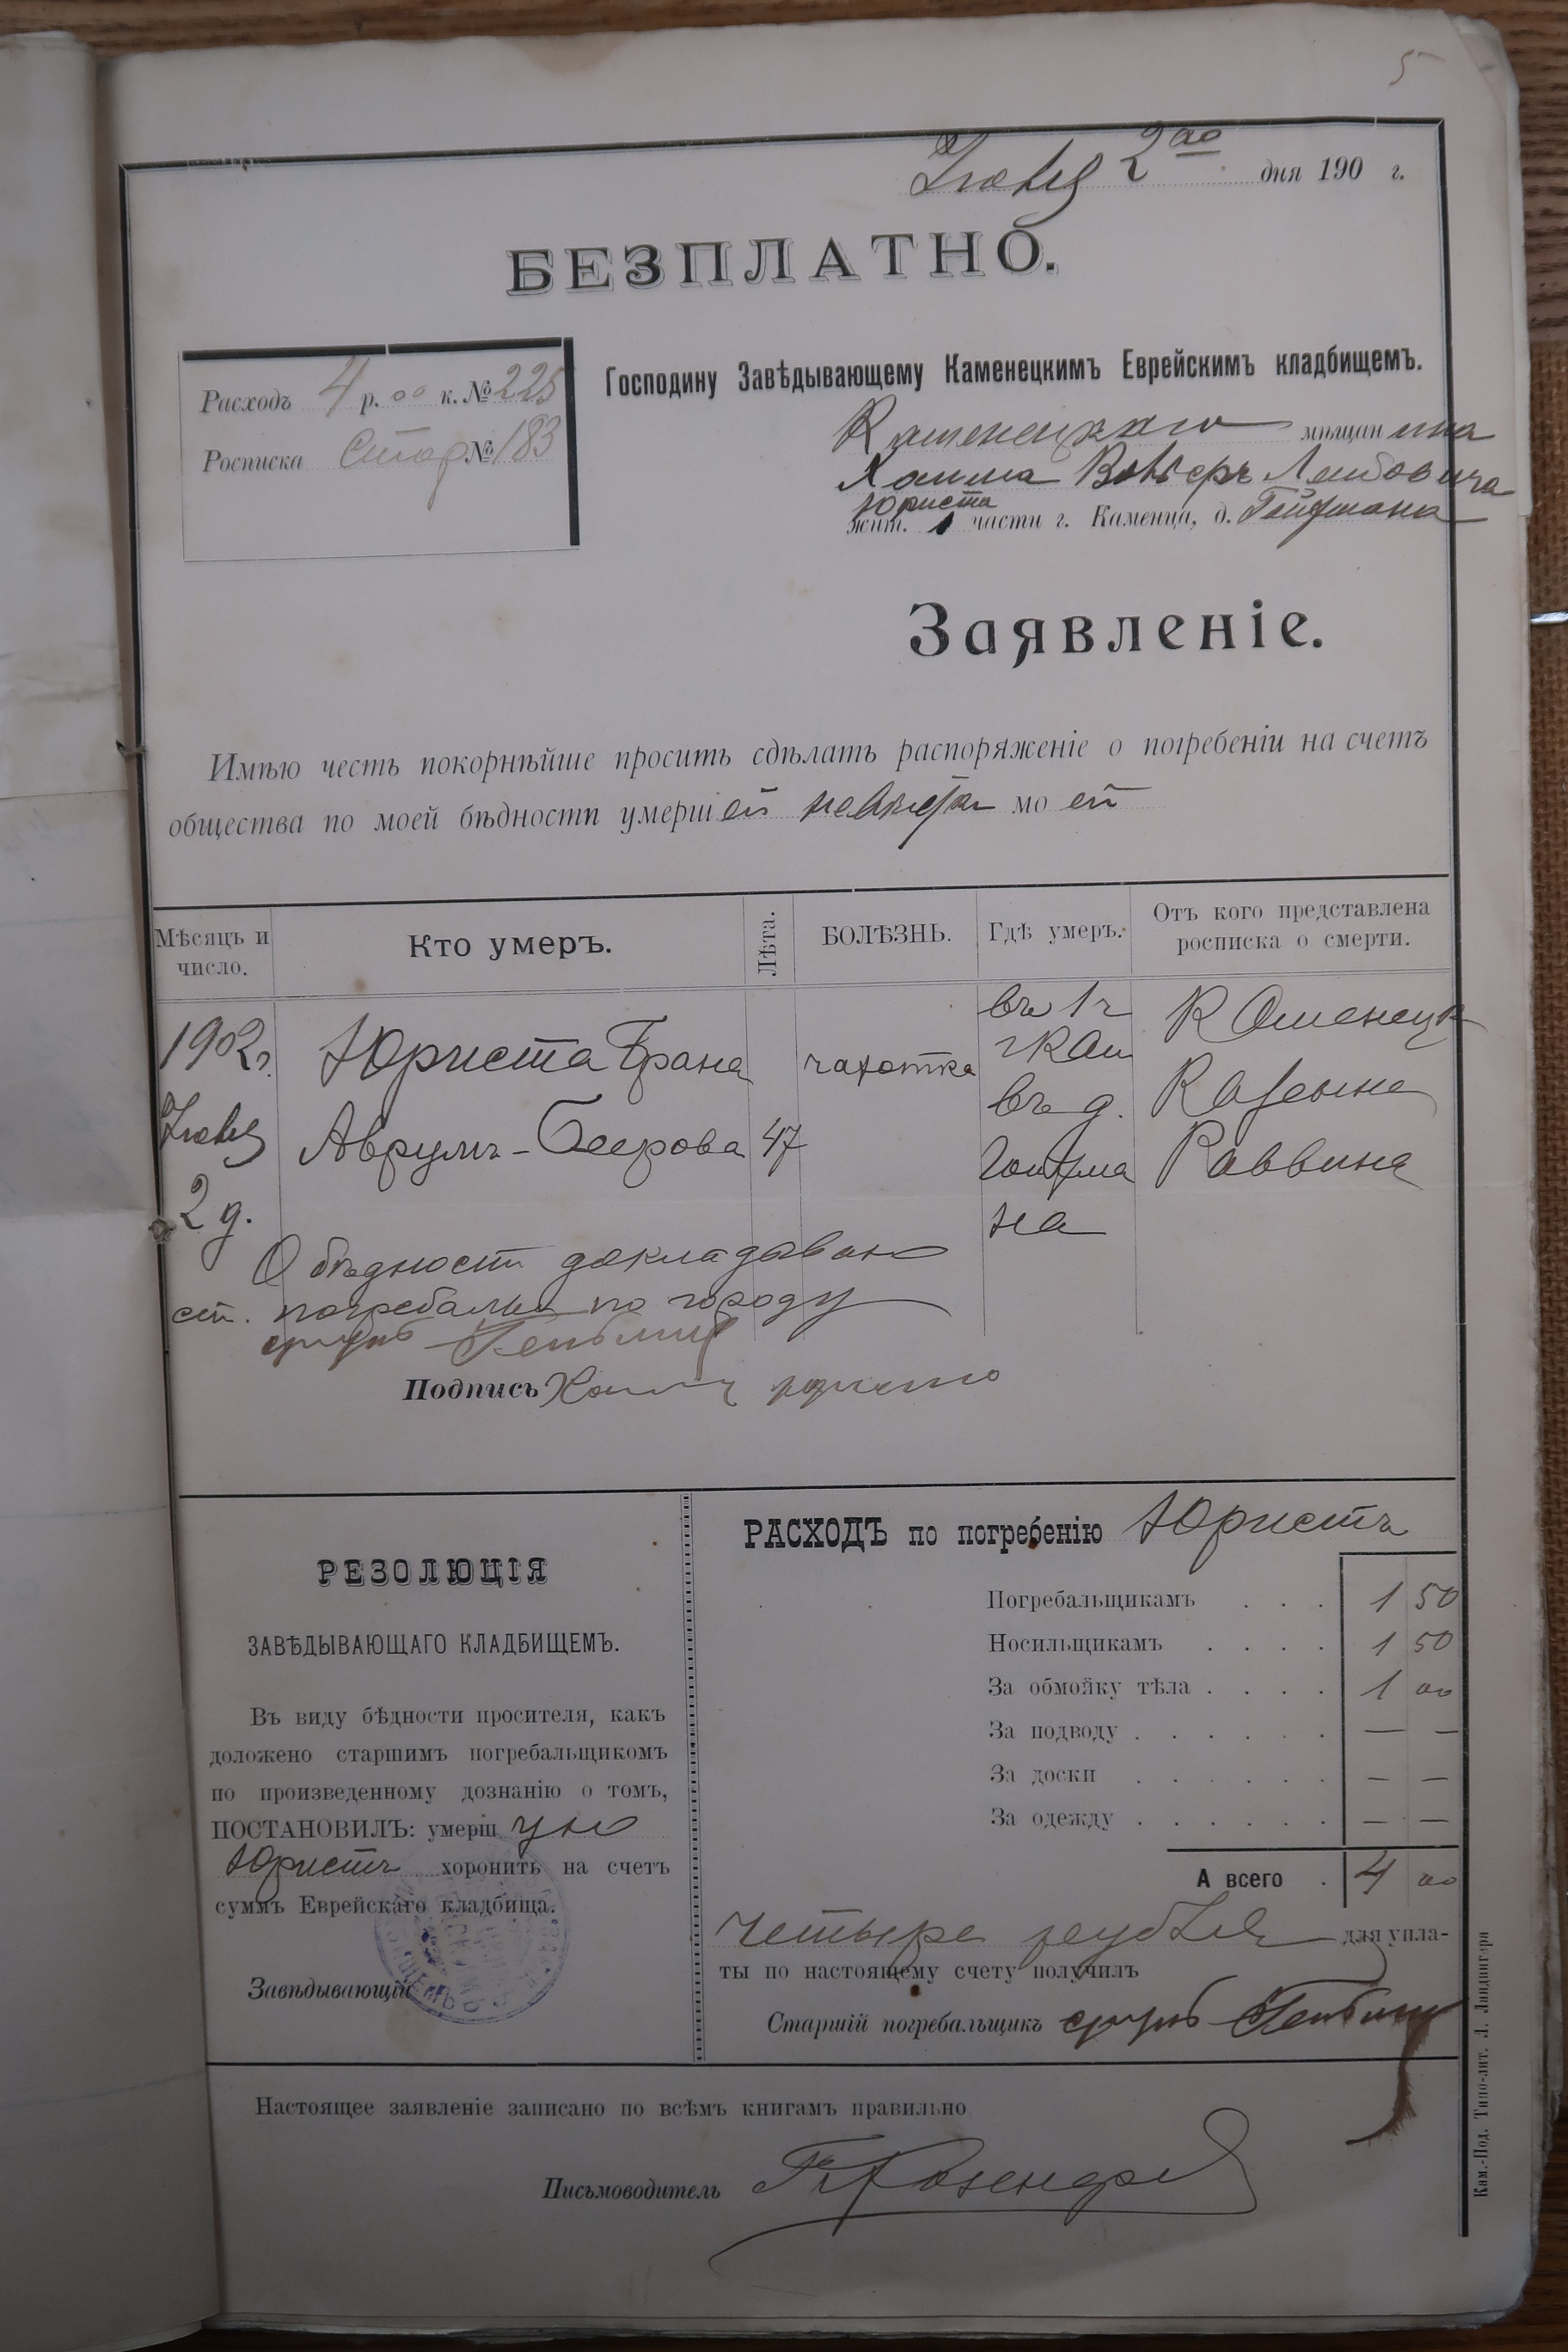 5
Іюля 2го дня 190 г.
БЕЗПЛАТНО.
Расходъ 4 р. 00 к. № 225
Росписка Стар № 183
Господину Завѣдывающему Каменецкимъ Еврейскимъ кладбищемъ.
Каменецкаго мѣщанина
Хаима Лейбовича
Юриста
жит. 1 части г. Каменца, д. Гойфмана
Заявленіе.
Имѣю честь покорнѣйше просить сдѣлать распоряженіе о погребеніи на счетъ
общества по моей бѣдности умершей невѣстки моей
Мѣсяцъ и число.
Кто умеръ.
Лѣта.
БОЛѢЗНЬ.
Гдѣ умеръ.
Отъ кого представлена росписка о смерти.
1902 г.
Іюля
2 д.
Юриста Брана
Аврумъ-Беерова
47
чахотка
въ 1 ч
г Кам
въ д.
Гойфма
на
Каменецк
Казеннаго
Раввина
О бѣдности докладываю
ст. погребальщ по городу
Подпись Хаимъ Юристъ
РЕЗОЛЮЦІЯ
ЗАВѢДЫВАЮЩАГО КЛАДБИЩЕМЪ.
Въ виду бѣдности просителя, какъ
доложено старшимъ погребальщикомъ
по произведенному дознанію о томъ,
ПОСТАНОВИЛЪ: умершую
Юристъ хоронить на счетъ
суммъ Еврейскаго кладбища.
Завѣдывающій
РАСХОДЪ по погребенію Юристъ
Погребальщикамъ . . . 1 50
Носильщикамъ . . . . 1 50
За обмойку тѣла . . . . 1 00
За подводу . . . . . . — —
За доски . . . . . . — —
За одежду . . . . . . — —
А всего . 4 00
четыре рубля для упла-
ты по настоящему счету получилъ
Старшій погребальщикъ
Настоящее заявленіе записано по всѣмъ книгамъ правильно
Письмоводитель
Кам.-Под. Типо-лит. Л. Ландвигера